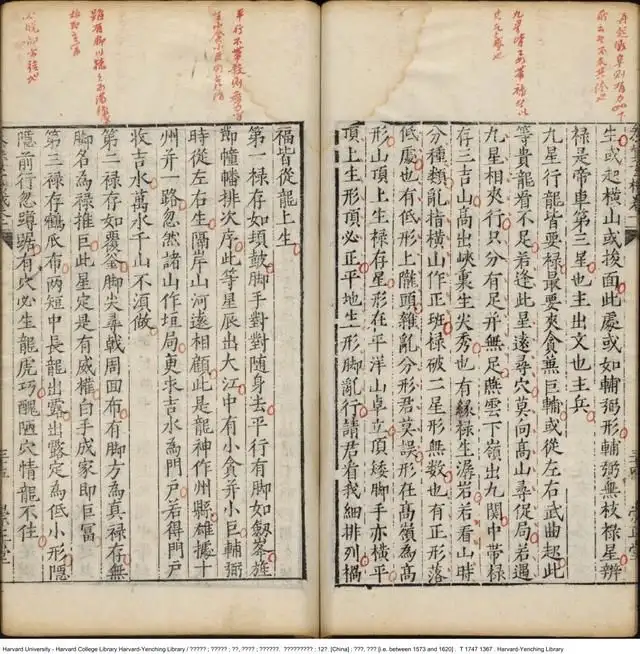 生或起橫山或拔面此處或如輔弼形輔弼無枝祿星辨
祿是帝車第三星也主出文也主兵
九星行龍皆要祿最要夾貪兼巨輔或從左右武曲起此
等貴龍看不足若逢此星遠尋穴莫向高山尋促局若遇
九星相夾行只分有足并無足燕雲下嶺出九關中帶祿
存三吉山高出峽裏生尖秀也有緣祿生潺岩若看山時
分種類亂指橫山作正班祿破二星形無數也有正形落
低處也有低形上隴頭雜亂分形君莫誤形在高嶺為高
形山頂上生祿存星形在平洋山卓立頂矮腳手亦橫平
頂上生形頂必正平地生形腳亂行請君看我細排列禍
福皆從龍上生
第一祿存如頓鼓腳手對對隨身去平行有腳如劔峯旌
節幢幡排次序此等星辰出大江中有小貪并小巨輔弼
時從左右生隔岸山河遠相顧此是龍神作州縣雄據十
州并一路忽然諸山作垣局更求吉水為門戶若得門戶
收吉水萬水千山不須做
第二祿存如覆釜腳尖尋戟周囬布有腳方為真祿存無
腳名為祿堆巨此星定是有威權白手成家即巨富
第三祿存鶴爪布兩短中長龍出露出露定為低小形隱
隱前行忽蹲踞有穴必生龍虎巧醜陋穴情龍不住
Harvard University - Harvard College Library Harvard-Yenching Library / ????? ; ????? : ??, ???? ; ??????. ????????? : 12?. [China] : ???, ??? [i.e. between 1573 and 1620] . T 1747 1367 . Harvard-Yenching Library